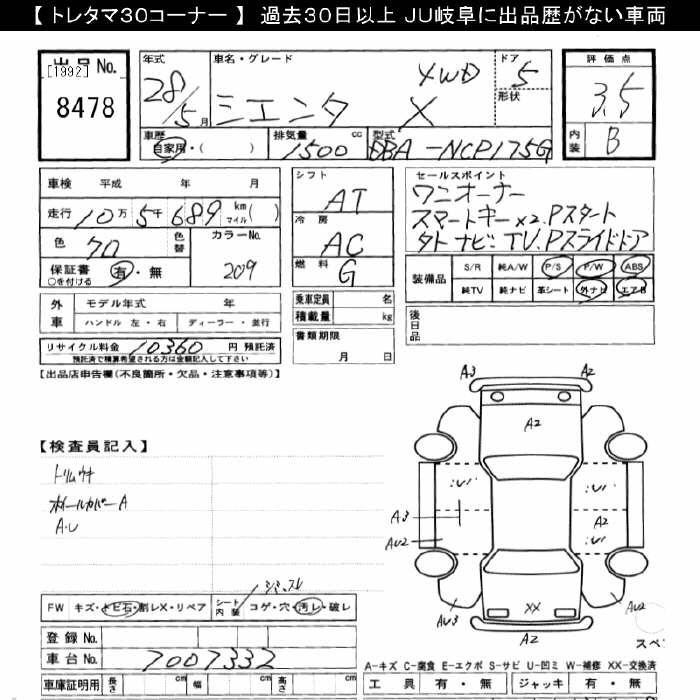 【 トレタマ30コーナー 】 過去30日以上 JU岐阜に出品歴がない車両
出品 No.
[1992]
8478
年式
28/5月
車名・グレード
シエンタ X 4WD
ドア
5
形状
評価点
3.5
内装
B
車歴
自家用・( )
排気量
1500 cc
型式
DBA-NCP175G
車検 平成 年 月
走行 10万 5千 689 km マイル ( )
色 クロ 色替
カラーNo. 209
保証書 有・無
○を付ける
外車 モデル年式 年
ハンドル 左・右 ディーラー・並行
リサイクル料金 10360 円 預託済
預託済で積算希望される方は金額記入して下さい
シフト
AT
冷房
AC
燃料
G
乗車定員 名
積載量 kg
書類期限
月 日
セールスポイント
ワンオーナー
スマートキー×2.Pスタート
ナビ.TV.Pスライドドア
装備品
S/R 純A/W P/S P/W ABS
純TV 純ナビ 革シート 外ナビ エアB
後日品
【出品店申告欄(不良箇所・欠品・注意事項等)】
【検査員記入】
トリムウキ
ホイールカバーA
A.U
A3 A2
A2
A3
A2
AU2
AU3
XX
AU2
A2
FW キズ・トビ石・割レX・リペア
シート内装 コゲ・穴・汚レ・破レ
登録 No.
車台 No. 7007332
車庫証明用 長さ cm 幅 cm 高さ cm
スペ
A-キズ C-腐食 E-エクボ S-サビ U-凹ミ W-補修 XX-交換済
工具 有・無 ジャッキ 有・無